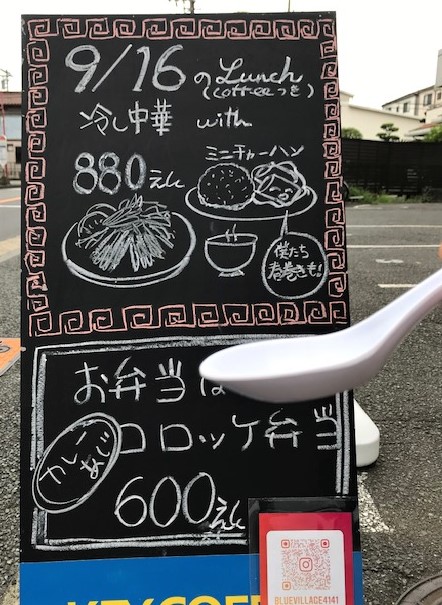 9/16 の Lunch
(coffeeつき)
冷し中華 with
ミニチャーハン
880えん
僕たち
春巻きも!
お弁当は
コロッケ弁当
カレー
あじ
600えん
BLUEVILLAGE4141
KEY COF